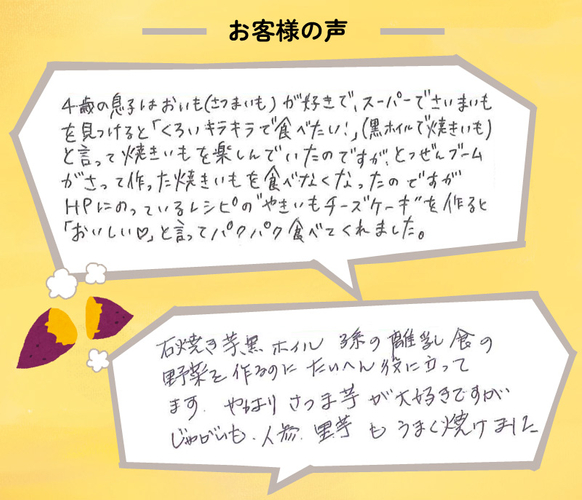 お客様の声
4歳の息子はおいも(さつまいも)が好きで、スーパーでさいまいも
を見つけると「くろいキラキラで食べたい!」(黒ホイルで焼きいも)
と言って焼きいもを楽しんでいたのですが、とつぜんブーム
がさって作った焼きいもを食べなくなったのですが
HPにのっているレシピの"やきいもチーズケーキ"を作ると
「おいしい♡」と言ってパクパク食べてくれました。
石焼き芋黒ホイル 孫の離乳食の
野菜を作るのにたいへん役に立って
ます。やはりさつま芋が大好きですが
じゃがいも、人参、里芋もうまく焼けました